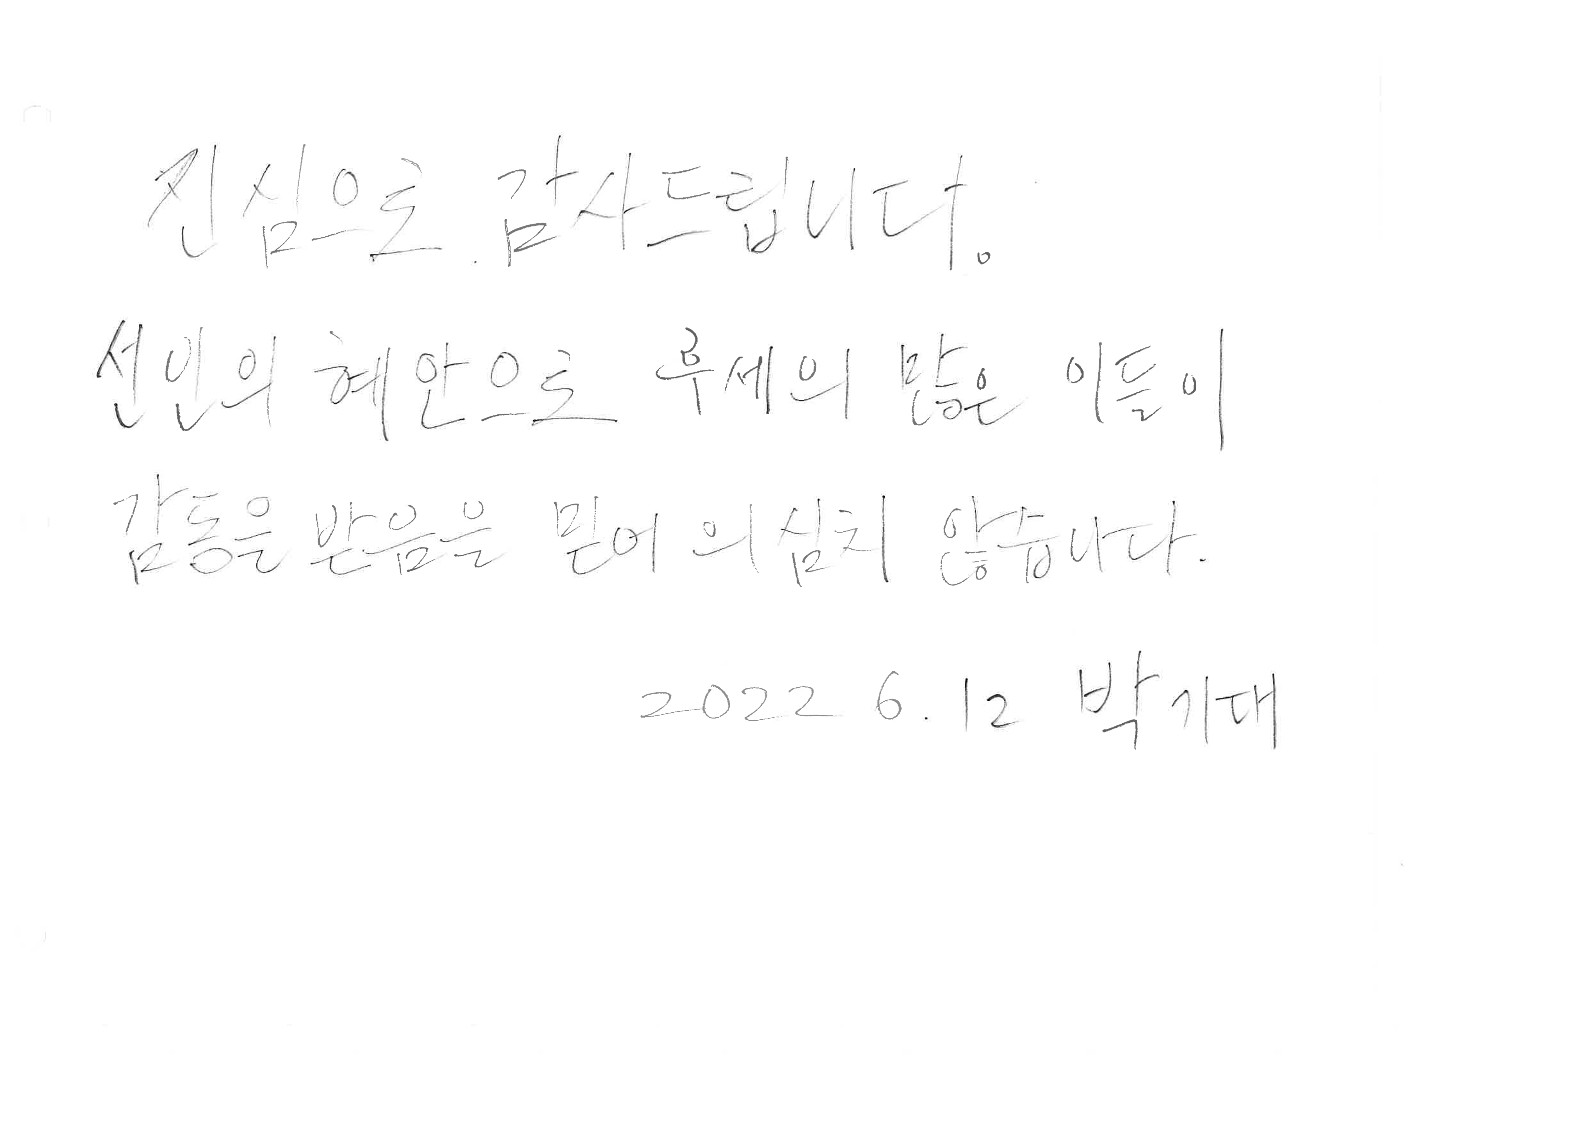 진심으로 감사드립니다.
선인의 혜안으로 후세의 많은 이들이
감동을 받음을 믿어 의심치 않습니다.
2022 6. 12 박기대